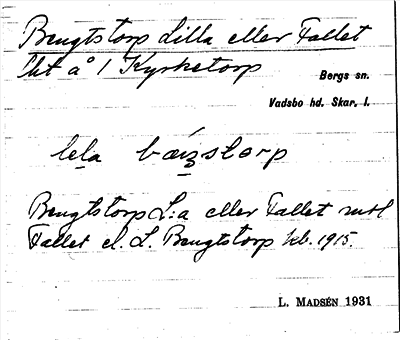 Bengtstorp Lilla eller Fallet
lit å 1 Kyrketorp
Bergs sn.
Vadsbo hd. Skar. l.
lela bæŋstorp
Bengtstorp L:a eller Fallet
Fallet el. L. Bengtstorp Jb. 1915.
L. Madsén 1931